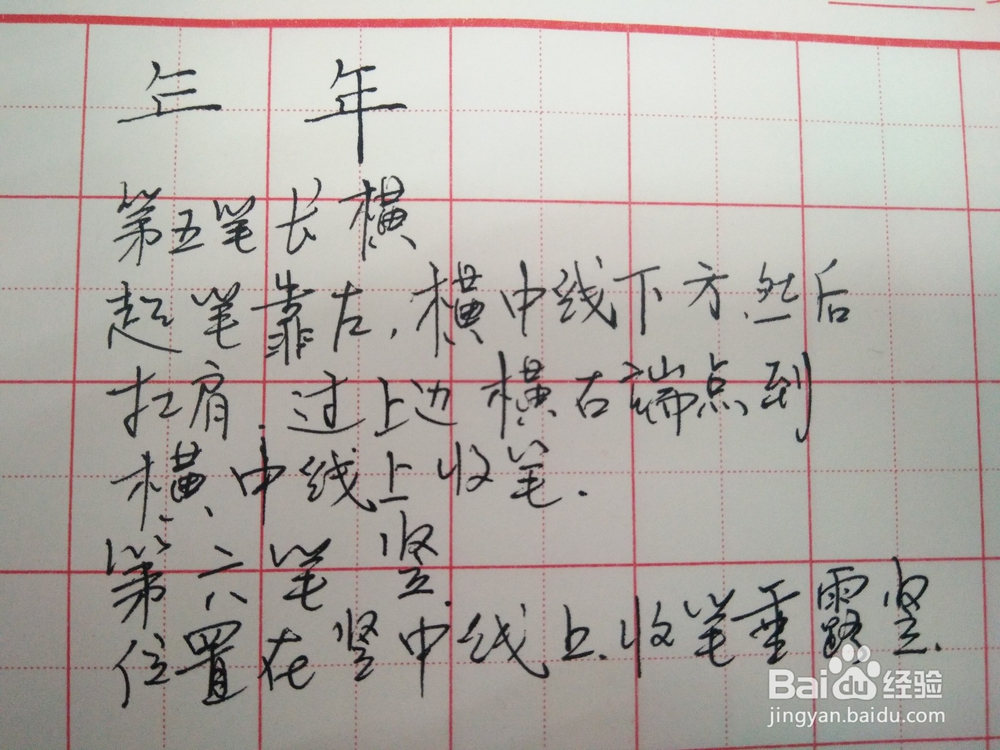 年
第五笔长横
起笔靠左,横中线下方.然后
扛肩.过上边横右端点到
横.中线上收笔.
第六笔竖.
位置在竖中线上.收笔垂露竖.
Baidu经验
jingyan.baidu.com